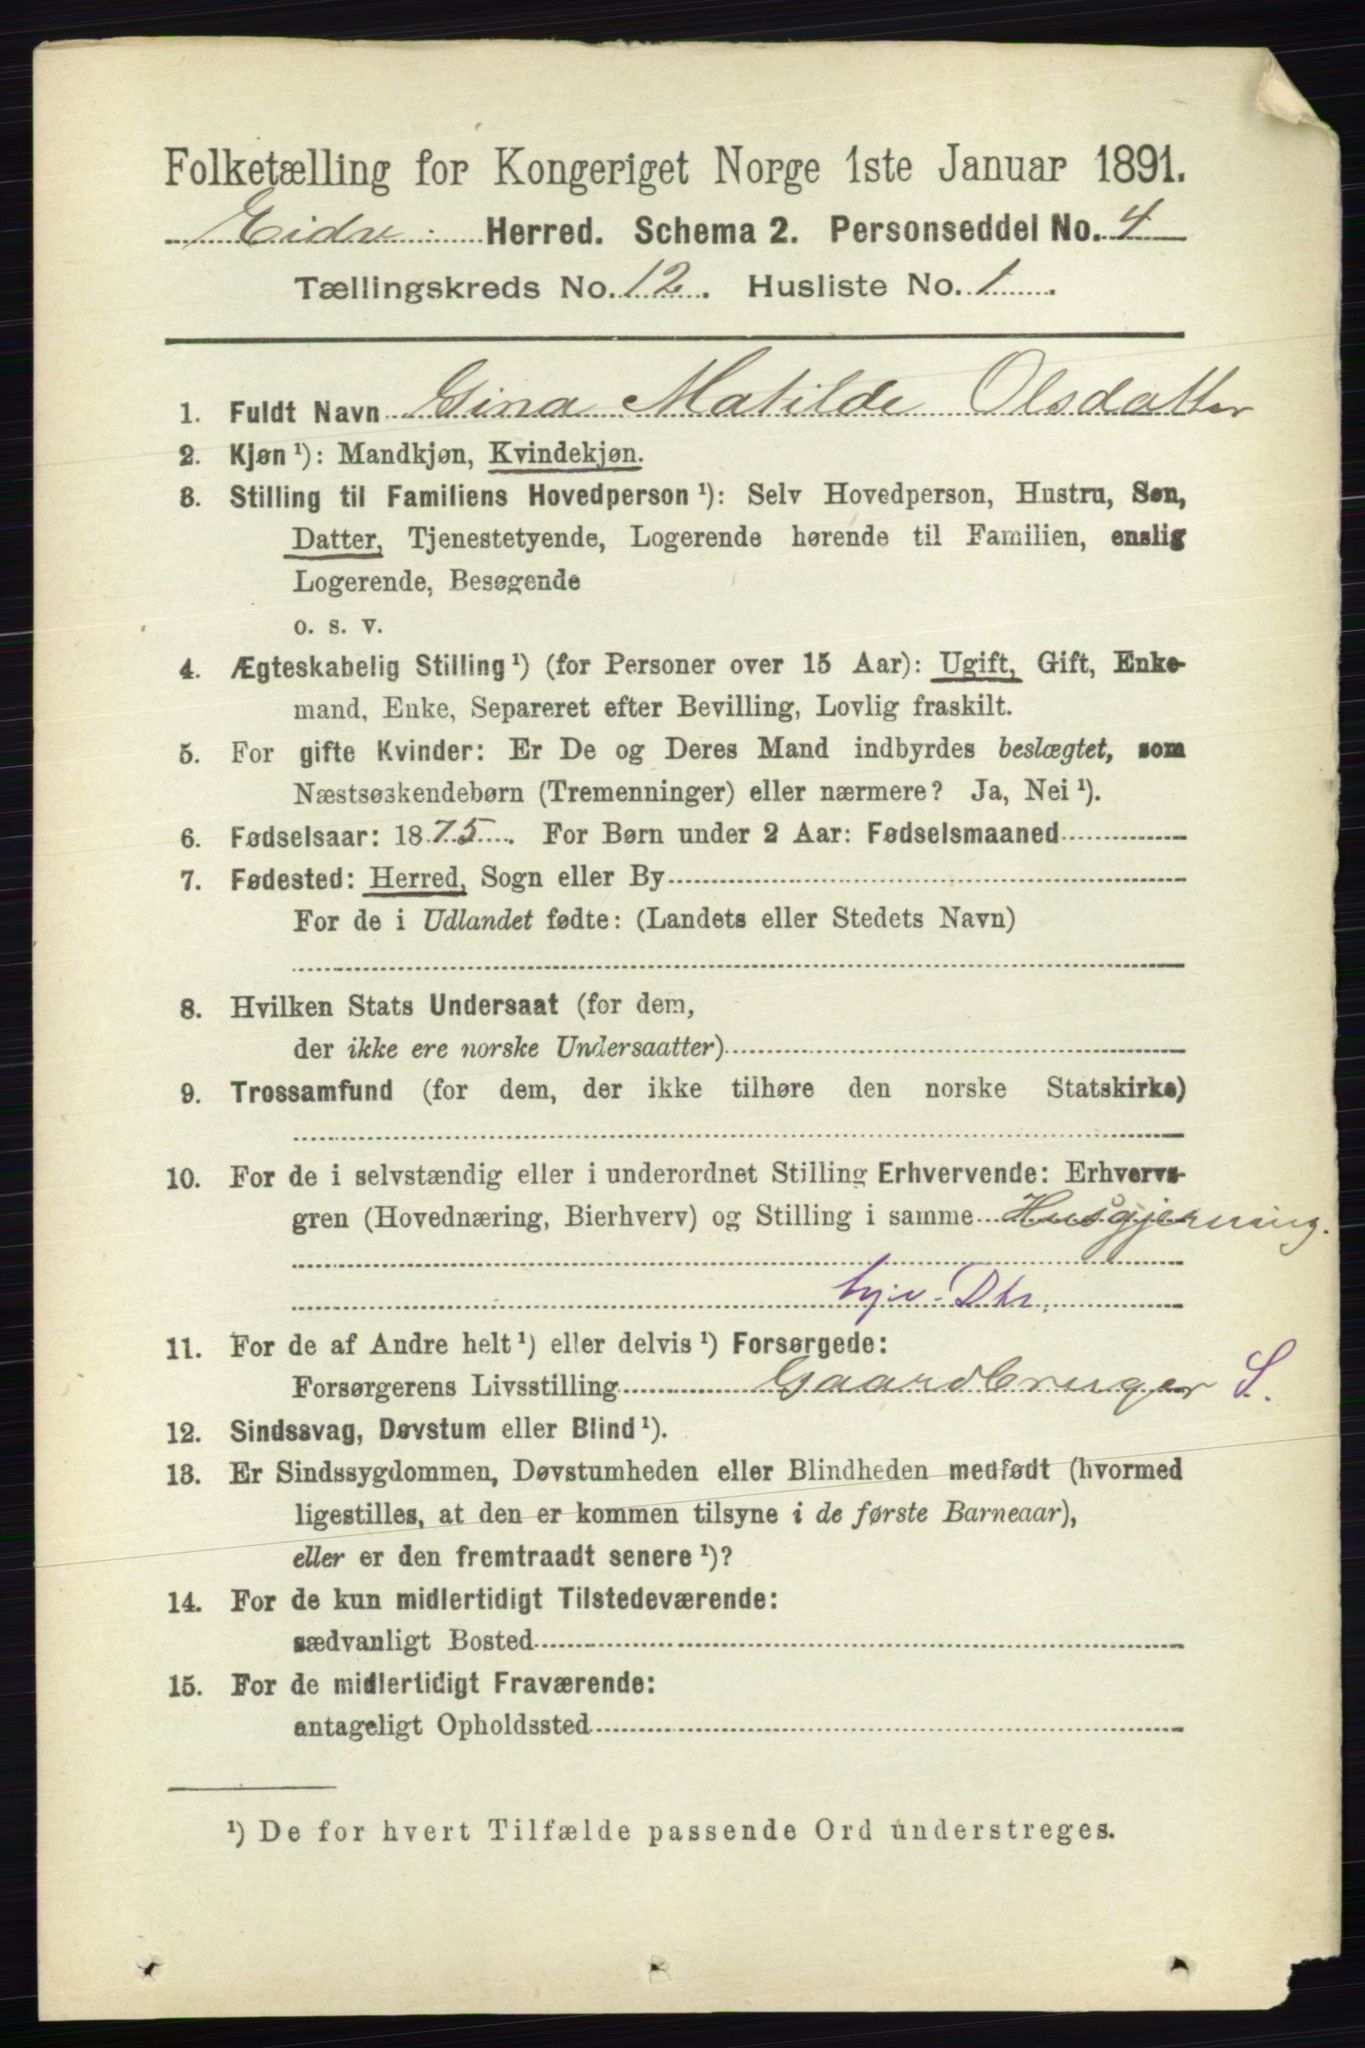 Folketælling for Kongeriget Norge 1ste Januar 1891.
Herred. Schema 2. Personseddel No. 4
Tællingskreds No. 12. Husliste No. 1.
1. Fuldt Navn Gina Matilde Olsdatter
2. Kjøn ¹): Mandkjøn, Kvindekjøn.
3. Stilling til Familiens Hovedperson ¹): Selv Hovedperson, Hustru, Søn,
Datter, Tjenestetyende, Logerende hørende til Familien, enslig
Logerende, Besøgende
o. s. v.
4. Ægteskabelig Stilling ¹) (for Personer over 15 Aar): Ugift, Gift, Enke-
mand, Enke, Separeret efter Bevilling, Lovlig fraskilt.
5. For gifte Kvinder: Er De og Deres Mand indbyrdes beslægtet, som
Næstsøskendebørn (Tremenninger) eller nærmere? Ja, Nei ¹).
6. Fødselsaar: 1875. For Børn under 2 Aar: Fødselsmaaned
7. Fødested: Herred, Sogn eller By
For de i Udlandet fødte: (Landets eller Stedets Navn)
8. Hvilken Stats Undersaat (for dem,
der ikke ere norske Undersaatter)
9. Trossamfund (for dem, der ikke tilhøre den norske Statskirke)
10. For de i selvstændig eller i underordnet Stilling Erhvervende: Erhvervs-
gren (Hovednæring, Bierhverv) og Stilling i samme Husgjerning.
hjv. Dtr.
11. For de af Andre helt ¹) eller delvis ¹) Forsørgede:
Forsørgerens Livsstilling Gaardbruger S.
12. Sindssvag, Døvstum eller Blind ¹).
13. Er Sindssygdommen, Døvstumheden eller Blindheden medfødt (hvormed
ligestilles, at den er kommen tilsyne i de første Barneaar),
eller er den fremtraadt senere ¹)?
14. For de kun midlertidigt Tilstedeværende:
sædvanligt Bosted
15. For de midlertidigt Fraværende:
antageligt Opholdssted
¹) De for hvert Tilfælde passende Ord understreges.